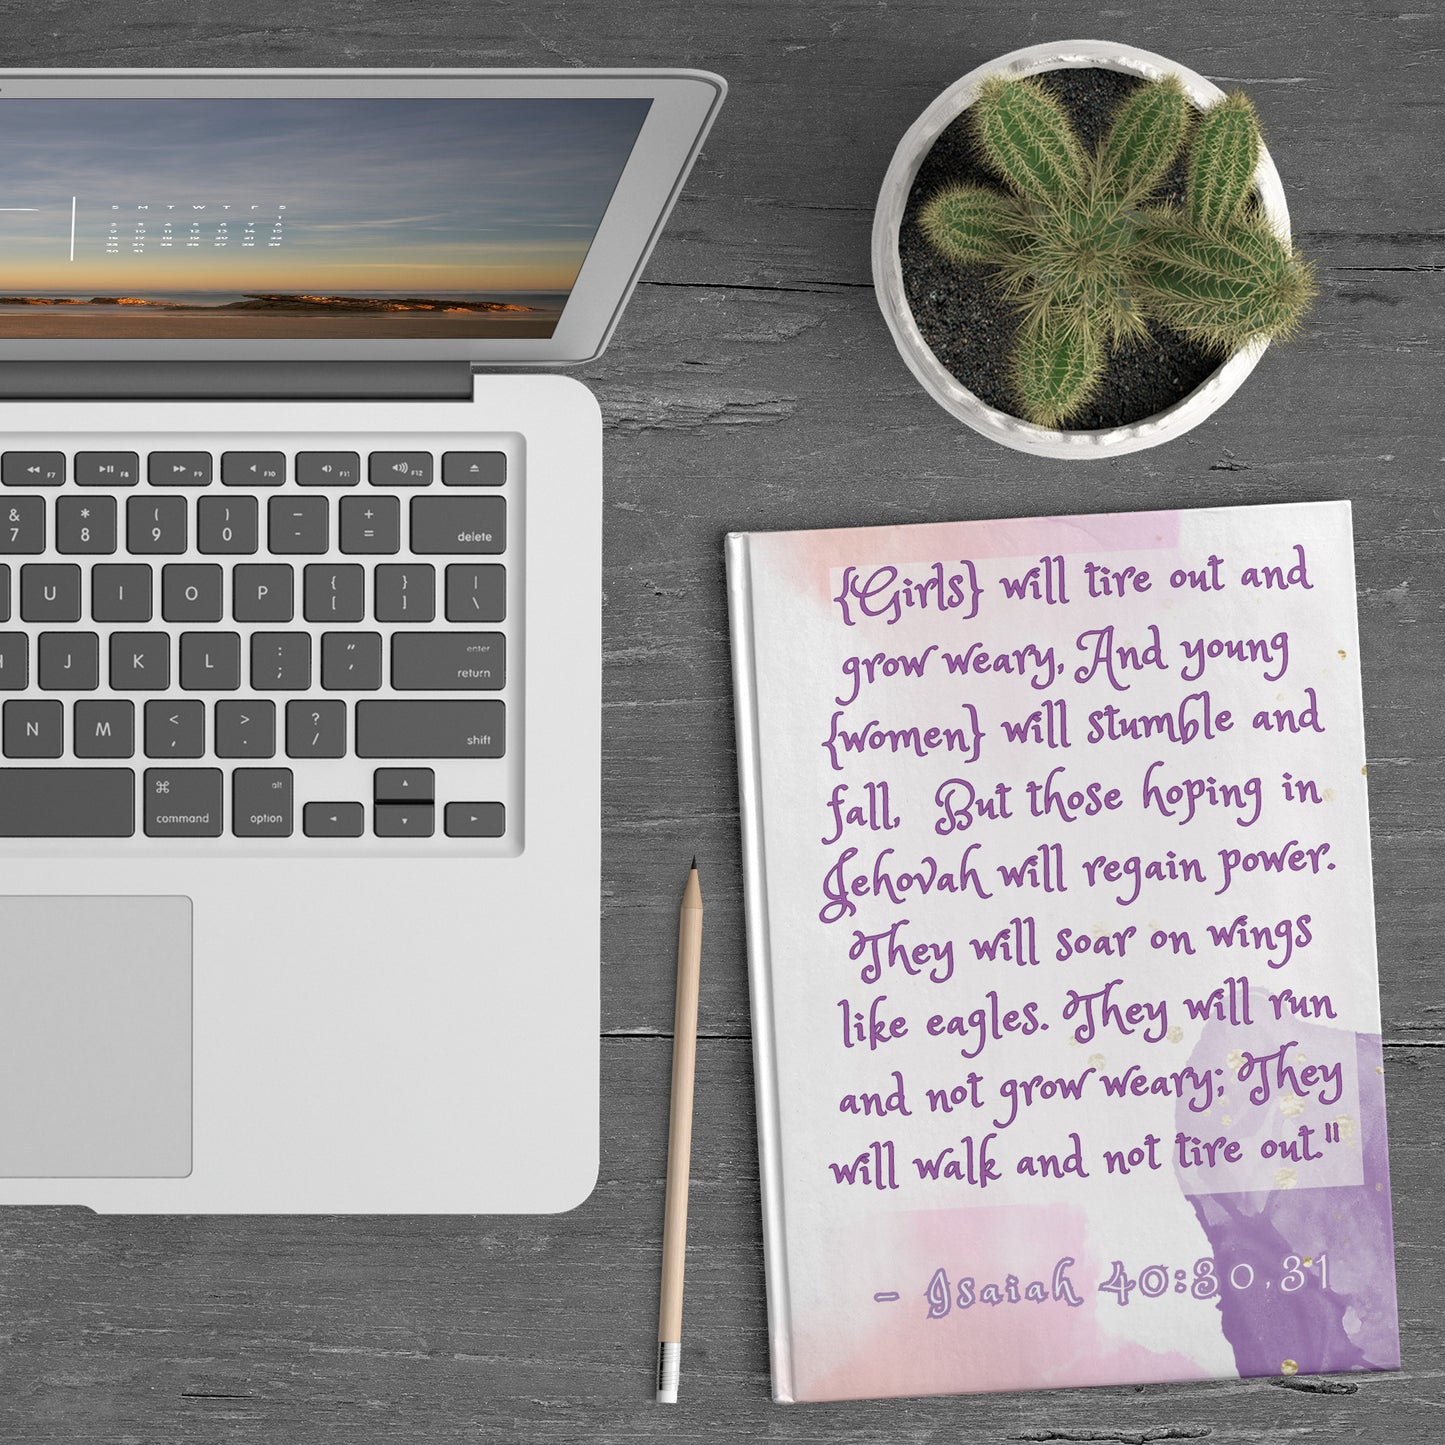 S M T W T F S
F7 F8 F9 F10 F11 F12
& * ( ) – +
7 8 9 0 - = delete
U I O P { [ } ] | \
J K L : ; " ' enter return
N M < , > . ? / shift
⌘ alt
command option
{Girls} will tire out and
grow weary, And young
{women} will stumble and
fall, But those hoping in
Jehovah will regain power.
They will soar on wings
like eagles. They will run
and not grow weary; They
will walk and not tire out."
- Isaiah 40:30,31